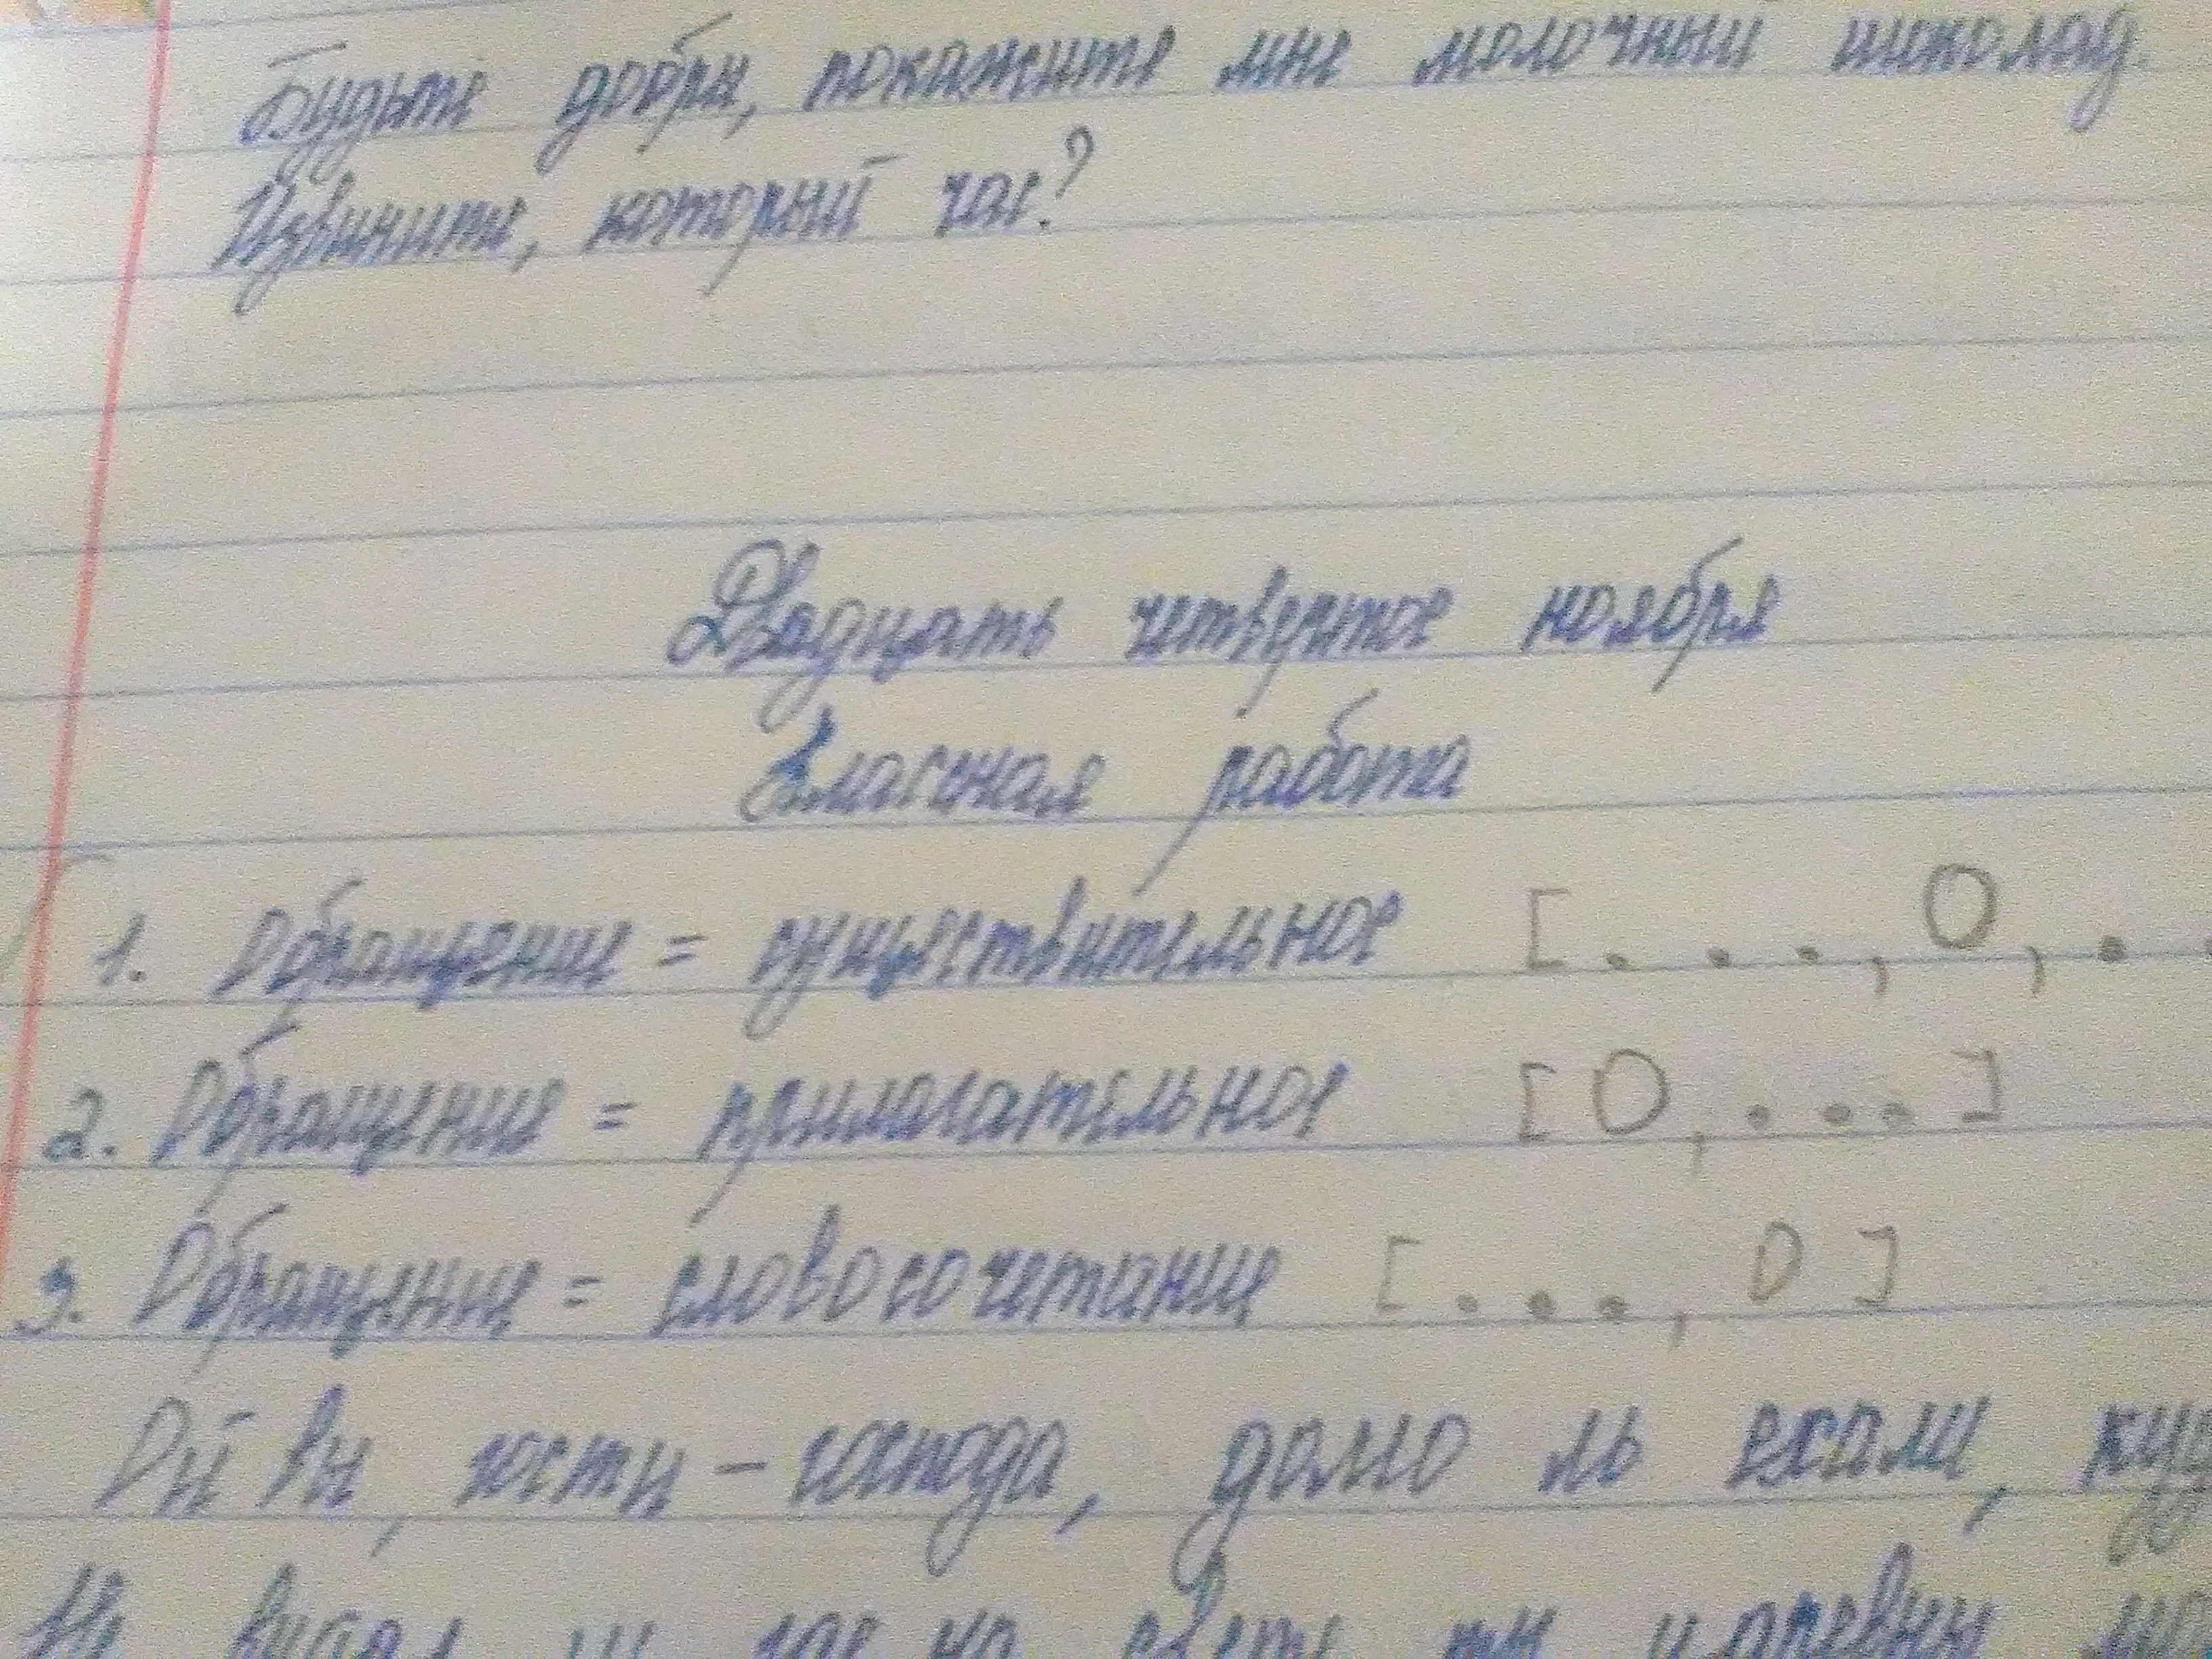 Будьте добры, покажите мне молочный шоколад.
Извините, который час?
Двадцать четвертое ноября
Классная работа
1. Обращение = существительное [. . . , О , .
2. Обращение = прилагательное [О, . . .]
3. Обращение = словосочетание [. . . , О]
Ой вы, гости - господа, долго ль ехали, куд
Не видал ли где на свете ты царевны